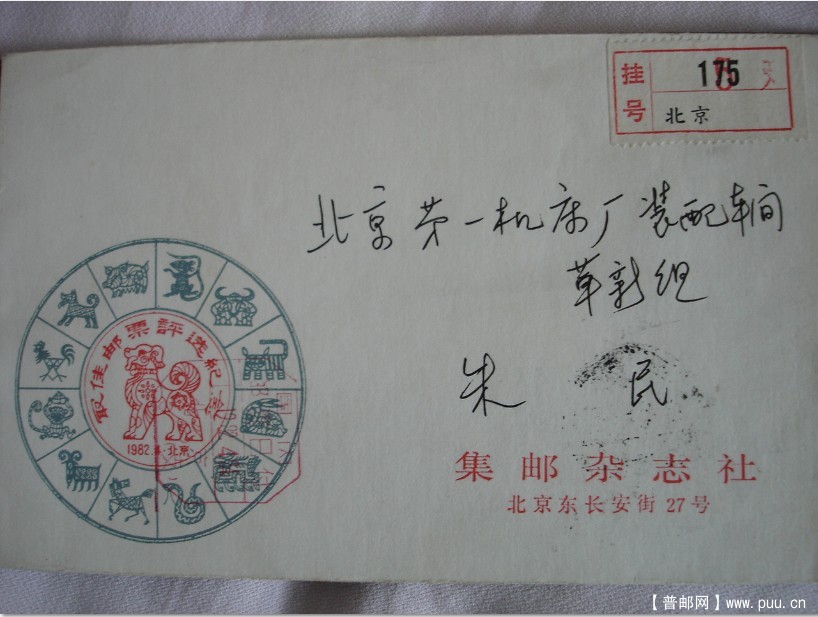 挂号
175
北京
北京第一机床厂装配车间
革新组
朱 民
最佳邮票評选紀念
1982.·北京·
集邮杂志社
北京东长安街 27 号
【普邮网】www.puu.cn